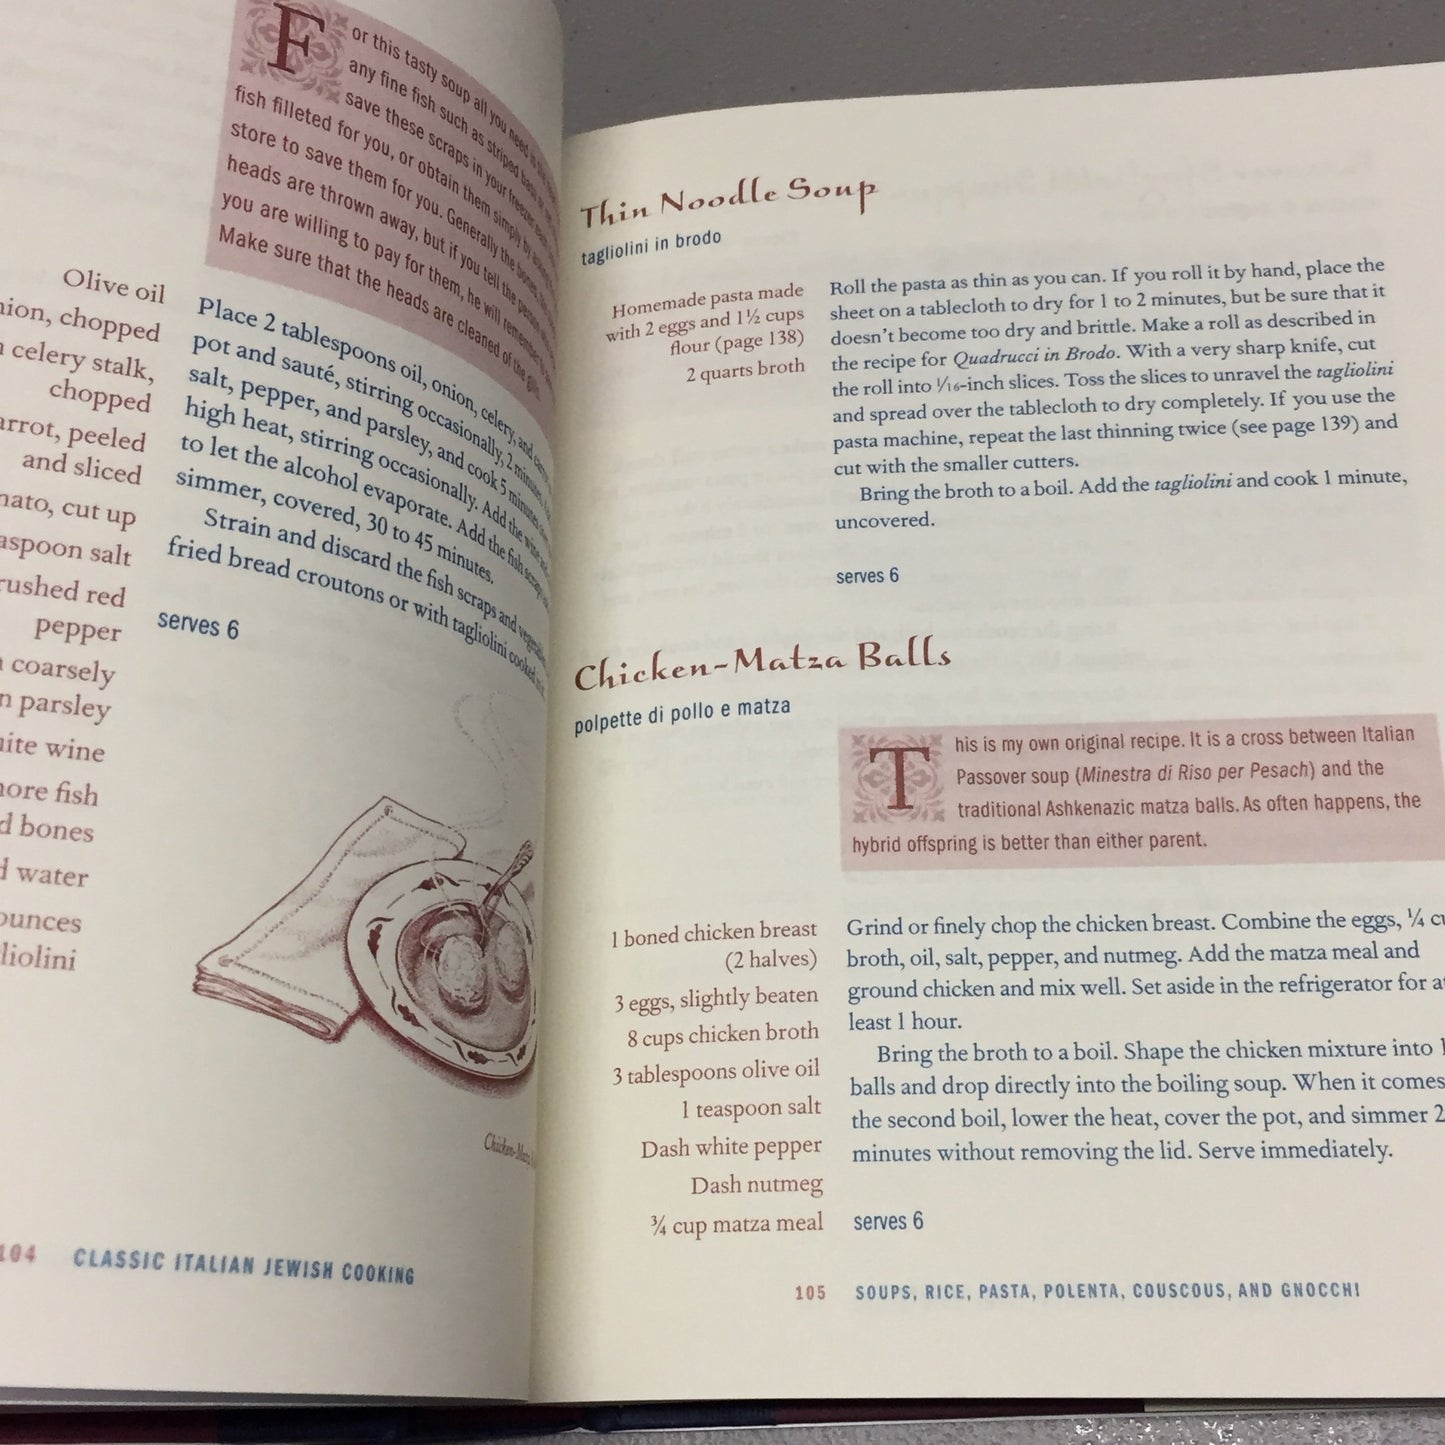 For this tasty soup all you need is the
any fine fish such as striped bass or
save these scraps in your freezer each
fish filleted for you, or obtain them simply by asking
store to save them for you. Generally the bones,
heads are thrown away, but if you tell the person
you are willing to pay for them, he will remember to
Make sure that the heads are cleaned of the gills.
Olive oil
chopped
celery stalk,
chopped
peeled
and sliced
cut up
salt
red
pepper
coarsely
parsley
wine
fish
bones
water
Place 2 tablespoons oil, onion, celery, and
pot and sauté, stirring occasionally, 2 minutes.
salt, pepper, and parsley, and cook 5 minutes
high heat, stirring occasionally. Add the wine and
to let the alcohol evaporate. Add the fish scraps
simmer, covered, 30 to 45 minutes.
Strain and discard the fish scraps and
fried bread croutons or with tagliolini cooked in it.
serves 6
Chicken-Matza
104 CLASSIC ITALIAN JEWISH COOKING
Thin Noodle Soup
tagliolini in brodo
Homemade pasta made
with 2 eggs and 1½ cups
flour (page 138)
2 quarts broth
Roll the pasta as thin as you can. If you roll it by hand, place the
sheet on a tablecloth to dry for 1 to 2 minutes, but be sure that it
doesn't become too dry and brittle. Make a roll as described in
the recipe for Quadrucci in Brodo. With a very sharp knife, cut
the roll into 1/16-inch slices. Toss the slices to unravel the tagliolini
and spread over the tablecloth to dry completely. If you use the
pasta machine, repeat the last thinning twice (see page 139) and
cut with the smaller cutters.
Bring the broth to a boil. Add the tagliolini and cook 1 minute,
uncovered.
serves 6
Chicken-Matza Balls
polpette di pollo e matza
This is my own original recipe. It is a cross between Italian
Passover soup (Minestra di Riso per Pesach) and the
traditional Ashkenazic matza balls. As often happens, the
hybrid offspring is better than either parent.
1 boned chicken breast
(2 halves)
3 eggs, slightly beaten
8 cups chicken broth
3 tablespoons olive oil
1 teaspoon salt
Dash white pepper
Dash nutmeg
¾ cup matza meal
Grind or finely chop the chicken breast. Combine the eggs, ¼
broth, oil, salt, pepper, and nutmeg. Add the matza meal and
ground chicken and mix well. Set aside in the refrigerator for at
least 1 hour.
Bring the broth to a boil. Shape the chicken mixture into
balls and drop directly into the boiling soup. When it comes
the second boil, lower the heat, cover the pot, and simmer
minutes without removing the lid. Serve immediately.
serves 6
105 SOUPS, RICE, PASTA, POLENTA, COUSCOUS, AND GNOCCHI